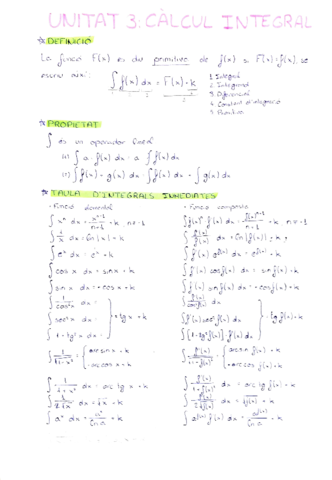 UNITAT 3: CÀLCUL INTEGRAL
* DEFINICIÓ
La funció F(x) es diu primitiva de f(x) si F'(x)=f(x), se
escriu així:
∫ f(x) dx = F(x) + k
1. Integral
2. Integrand
3. Diferencial
4. Constant d'integració
5. Primitiva
* PROPIETAT
∫ és un operador lineal
∫ a · f(x) dx = a ∫ f(x) dx
∫ f(x) + g(x) dx = ∫ f(x) dx + ∫ g(x) dx
* TAULA D'INTEGRALS IMMEDIATES
· Funció elemental
∫ xⁿ dx = xⁿ⁺¹/n+1 + k n≠-1
∫ 1/x dx = ln|x| + k
∫ eˣ dx = eˣ + k
∫ cos x dx = sin x + k
∫ sin x dx = -cos x + k
∫ 1/cos²x dx =
∫ sec²x dx = tg x + k
∫ 1 + tg²x dx =
arc sin x + k
-arc cos x + k
dx = arc tg x + k
dx = √x + k
∫ aˣ dx = aˣ/ln a + k
· Funció composta
∫ f(x)ⁿ · f'(x) dx = f(x)ⁿ⁺¹/n+1 + k n≠-1
∫ f'(x)/f(x) dx = ln|f(x)| + k
∫ f'(x) e^f(x) dx = e^f(x) + k
∫ f'(x) cos f(x) dx = sin f(x) + k
∫ f'(x) sin f(x) dx = -cos f(x) + k
∫ f'(x) sec² f(x) dx
tg f(x) + k
∫ [1 + tg² f(x)] · f'(x) dx
arc sin f(x) + k
-arc cos f(x) + k
dx = arc tg f(x) + k
dx = √f(x) + k
∫ a^f(x) f'(x) dx = a^f(x)/ln a + k